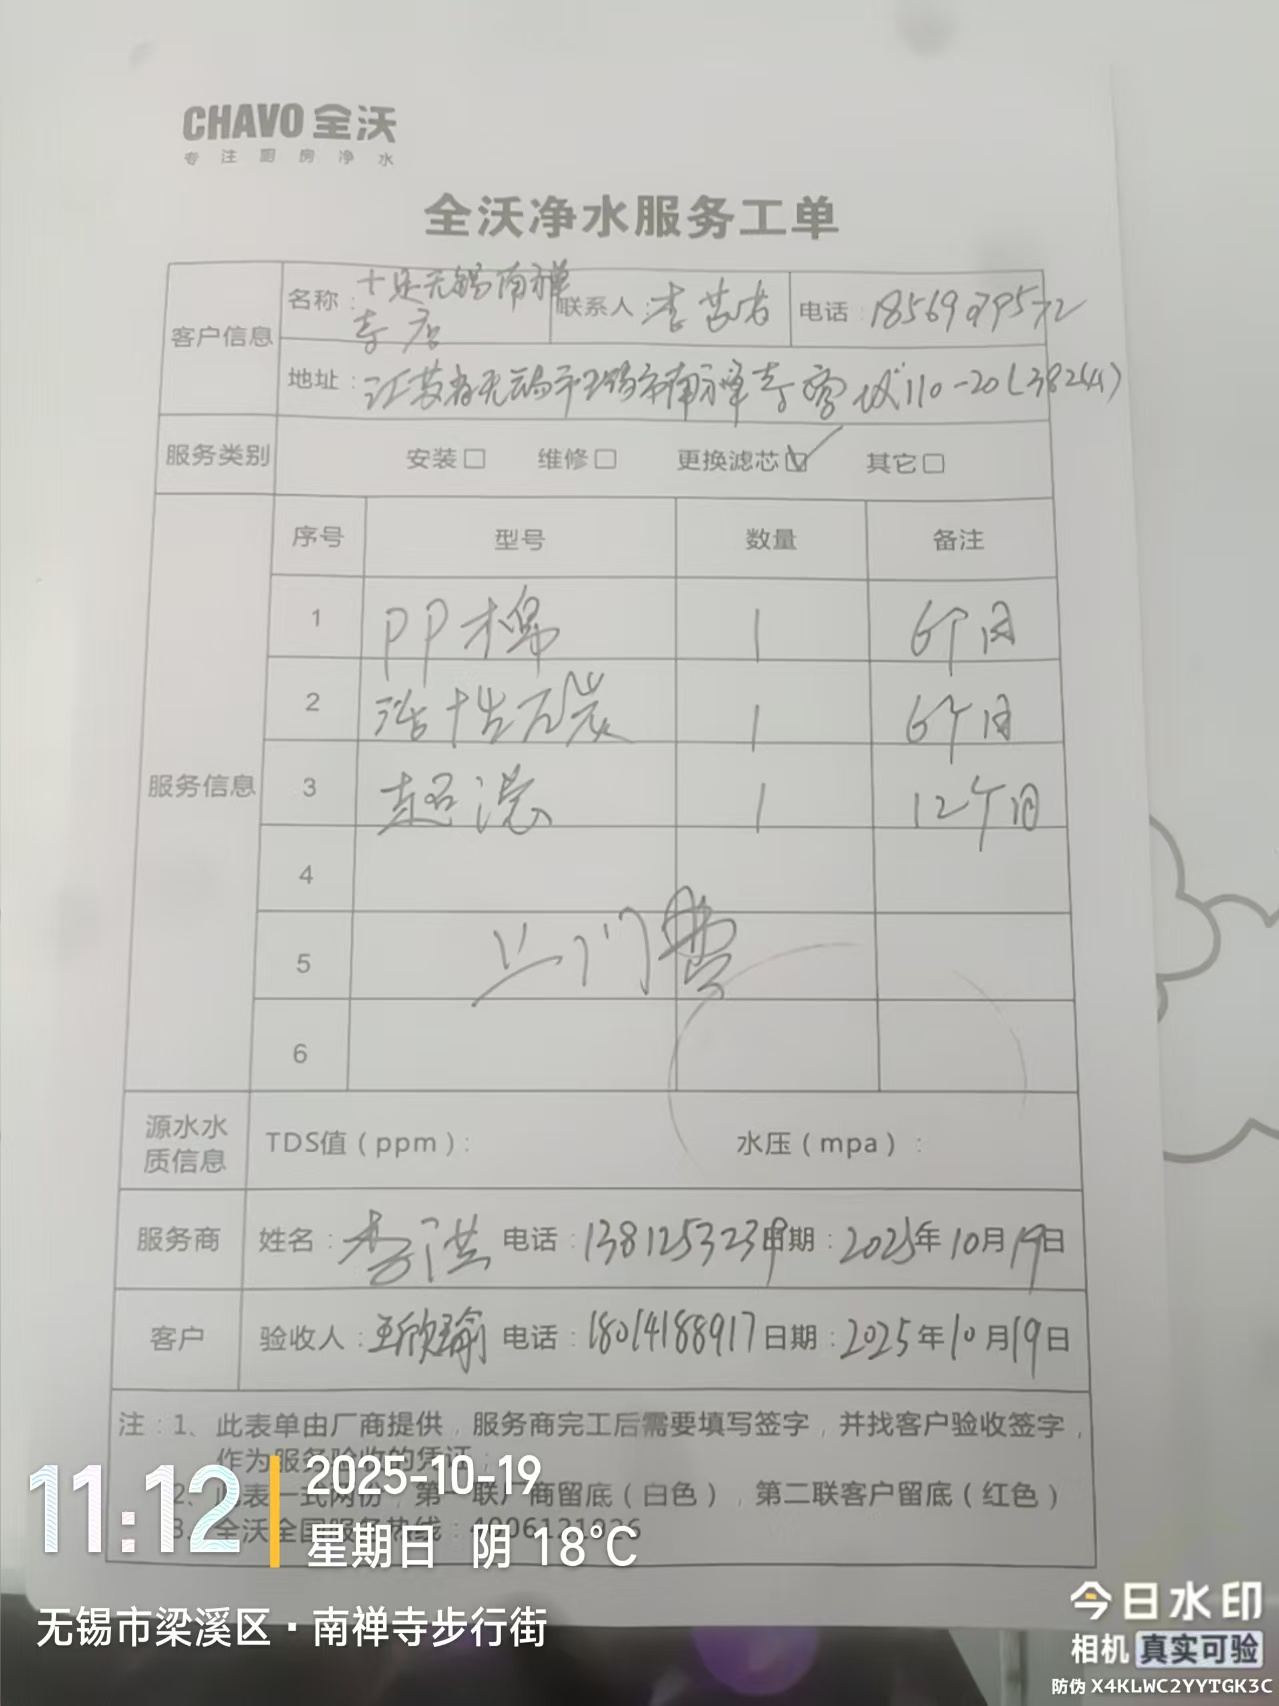 CHAVO 全沃
专注厨房净水
全沃净水服务工单
客户信息
名称：十足无锡南禅寺店 联系人：李 电话：18569079572
地址：江苏省无锡市无锡市南禅寺 110-20(38244)
服务类别 安装□ 维修□ 更换滤芯☑ 其它□
服务信息
序号 型号 数量 备注
1 PP棉 1 6个月
2 活性炭 1 6个月
3 超滤 1 12个月
4
5 上门费
6
源水水质信息 TDS值（ppm）： 水压（mpa）：
服务商 姓名：李洪 电话：1381253239 日期：2025年10月19日
客户 验收人：王欣瑜 电话：18014188917 日期：2025年10月19日
注：1、此表单由厂商提供，服务商完工后需要填写签字，并找客户验收签字，
作为服务验收的凭证；
2、此表一式两份，第一联厂商留底（白色），第二联客户留底（红色）
3、全沃全国服务热线：4006121026
11:12
2025-10-19
星期日 阴 18°C
无锡市梁溪区·南禅寺步行街
今日水印
相机 真实可验
防伪 X4KLWC2YYTGK3C